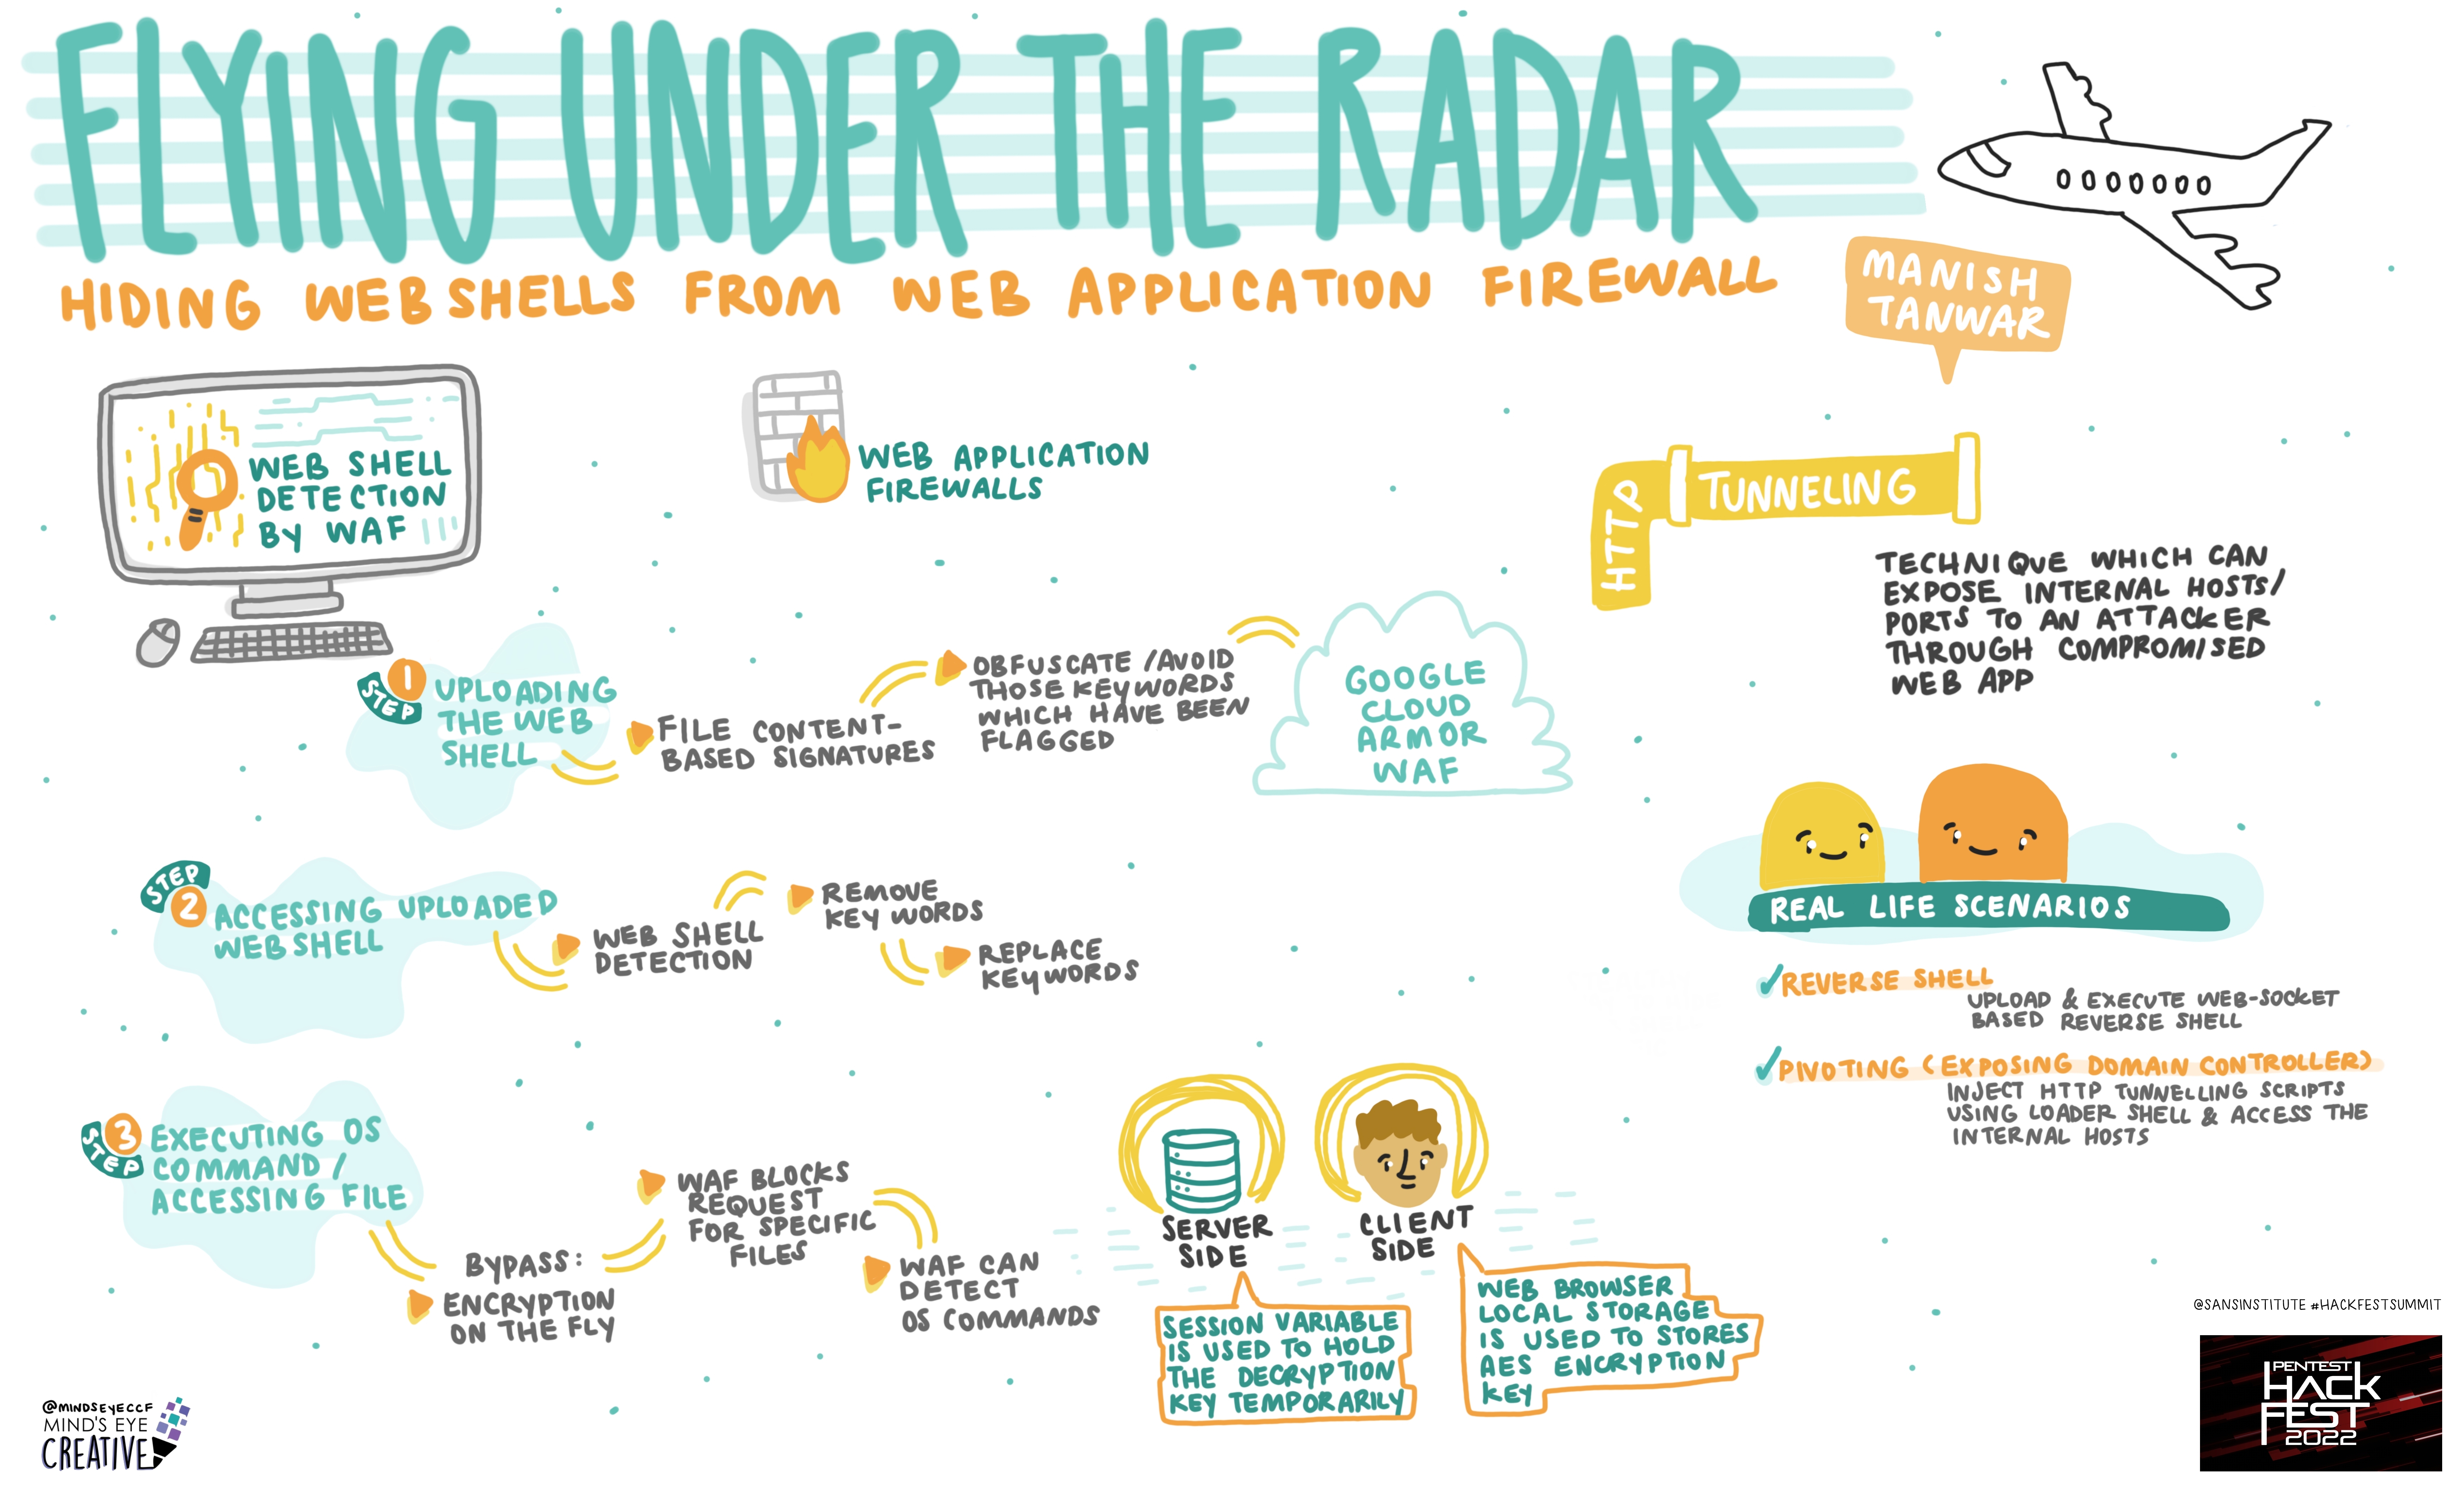 FLYING UNDER THE RADAR
HIDING WEB SHELLS FROM WEB APPLICATION FIREWALL
MANISH
TANWAR
WEB SHELL
DETECTION
BY WAF
WEB APPLICATION
FIREWALLS
HTTP
TUNNELING
TECHNIQUE WHICH CAN
EXPOSE INTERNAL HOSTS/
PORTS TO AN ATTACKER
THROUGH COMPROMISED
WEB APP
STEP
1
UPLOADING
THE WEB
SHELL
FILE CONTENT-
BASED SIGNATURES
OBFUSCATE /AVOID
THOSE KEYWORDS
WHICH HAVE BEEN
FLAGGED
GOOGLE
CLOUD
ARMOR
WAF
STEP
2
ACCESSING UPLOADED
WEB SHELL
WEB SHELL
DETECTION
REMOVE
KEY WORDS
REPLACE
KEYWORDS
STEP
3
EXECUTING OS
COMMAND /
ACCESSING FILE
BYPASS:
ENCRYPTION
ON THE FLY
WAF BLOCKS
REQUEST
FOR SPECIFIC
FILES
WAF CAN
DETECT
OS COMMANDS
SERVER
SIDE
SESSION VARIABLE
IS USED TO HOLD
THE DECRYPTION
KEY TEMPORARILY
CLIENT
SIDE
WEB BROWSER
LOCAL STORAGE
IS USED TO STORES
AES ENCRYPTION
KEY
REAL LIFE SCENARIOS
REVERSE SHELL
UPLOAD & EXECUTE WEB-SOCKET
BASED REVERSE SHELL
PIVOTING (EXPOSING DOMAIN CONTROLLER)
INJECT HTTP TUNNELLING SCRIPTS
USING LOADER SHELL & ACCESS THE
INTERNAL HOSTS
@SANSINSTITUTE #HACKFESTSUMMIT
PENTEST
HACK
FEST
2022
@MINDSEYECCF
MIND'S EYE
CREATIVE